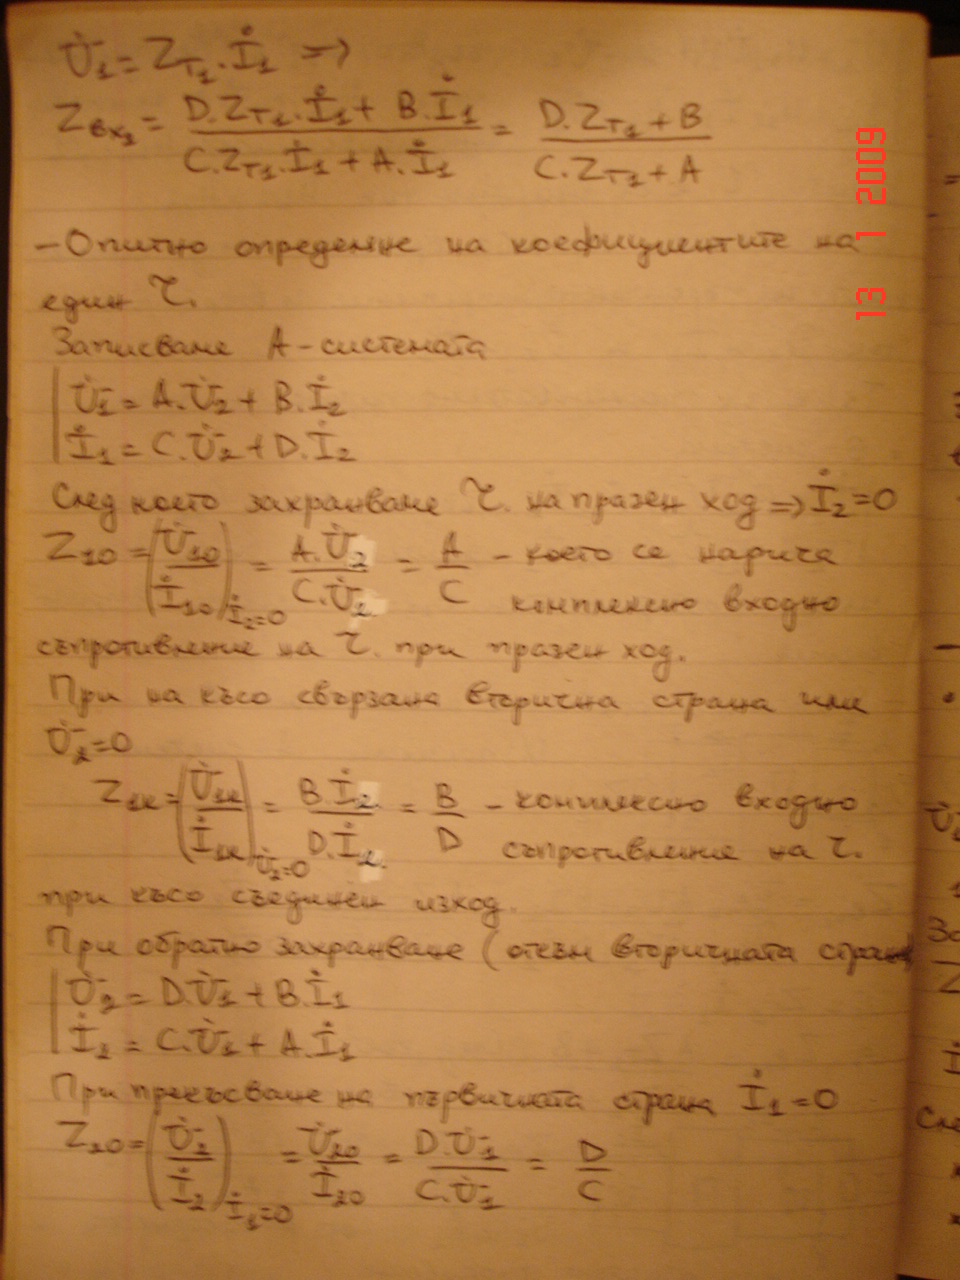 U̇₁ = Z_T₁.İ₁ =>
Z_вх₂ = (D.Z_T₁.İ₁ + B.İ₁)/(C.Z_T₁.İ₁ + A.İ₁) = (D.Z_T₁ + B)/(C.Z_T₁ + A)
– Опитно определяне на коефициентите на
един Ч.
Записваме А-системата
U̇₁ = A.U̇₂ + B.İ₂
İ₁ = C.U̇₂ + D.İ₂
След което захранваме Ч. на празен ход => İ₂=0
Z₁₀ = (U̇₁₀/İ₁₀)_İ₂=0 = A.U̇₂/C.U̇₂ = A/C – което се нарича
комплексно входно
съпротивление на Ч. при празен ход.
При на късо свързана вторична страна или
U̇₂=0
Z₁к = (U̇₁к/İ₁к)_U̇₂=0 = B.İ₂к/D.İ₂к = B/D – комплексно входно
съпротивление на Ч.
при късо съединен изход.
При обратно захранване (откъм вторичната страна
U̇₂ = D.U̇₁ + B.İ₁
İ₂ = C.U̇₁ + A.İ₁
При прекъсване на първичната страна İ₁=0
Z₂₀ = (U̇₂/İ₂)_İ₁=0 = U̇₂₀/İ₂₀ = D.U̇₁/C.U̇₁ = D/C
13 1 2009